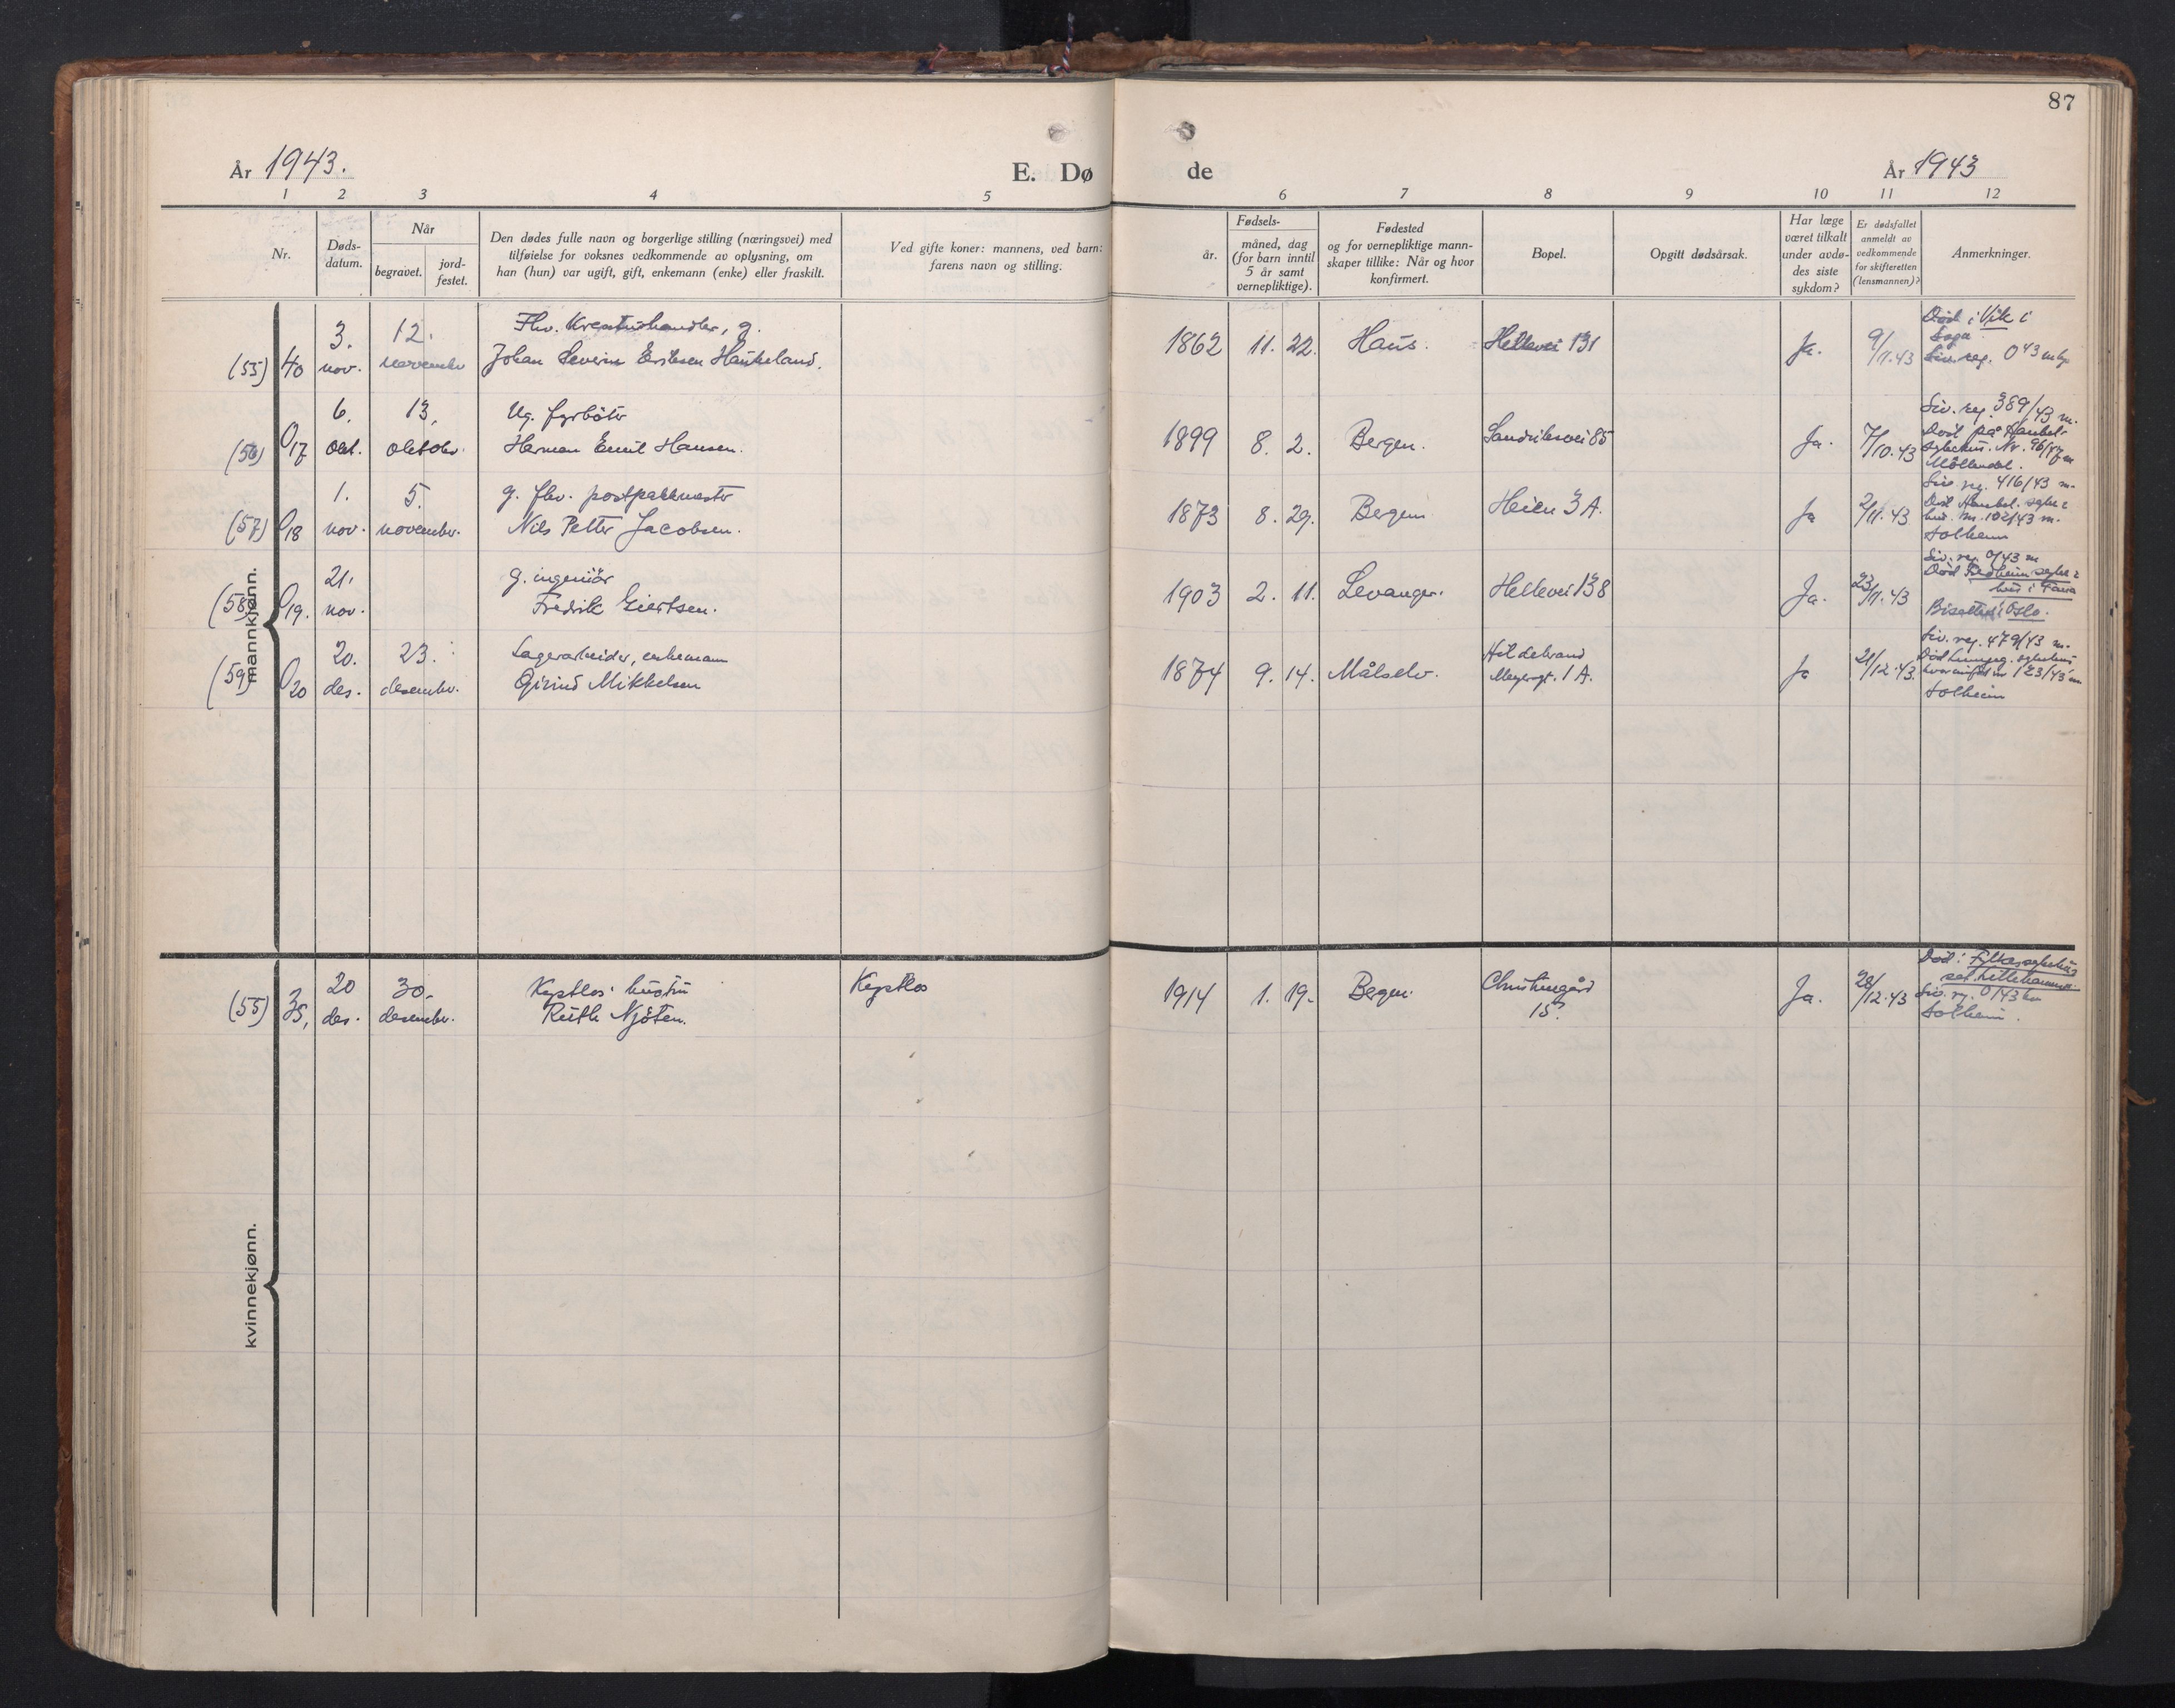 87
År 1943.
E. Dø de
År 1943
1 2 3 4 5 6 7 8 9 10 11 12
Nr.
Døds-
datum.
Når
begravet.
jord-
festet.
Den dødes fulle navn og borgerlige stilling (næringsvei) med
tilføielse for voksnes vedkommende av oplysning, om
han (hun) var ugift, gift, enkemann (enke) eller fraskilt.
Ved gifte koner: mannens, ved barn:
farens navn og stilling.
Fødsels-
år.
måned, dag
(for barn inntil
5 år samt
vernepliktige).
Fødested
og for vernepliktige mann-
skaper tillike: Når og hvor
konfirmert.
Bopel.
Opgitt dødsårsak.
Har læge
været tilkalt
under avdø-
des siste
sykdom?
Er dødsfallet
anmeldt av
vedkommende
for skifteretten
(lensmannen)?
Anmerkninger.
mannkjønn.
3. 12. Fhv. Kreaturhandler, g.
(55) 40 nov. november Johan Severin Eriksen Haukeland.
1862 11. 22. Haus. Hellevei 131 Ja. 9/11.43
Død i Vik i
Sogn
Siv. reg. 0 43
6. 13. Ug. fyrbøter
(56) 017 okt. oktober. Herman Emil Hansen.
1899 8. 2. Bergen. Sandviksvei 85 Ja. 7/10.43
Siv. reg. 389/43 m.
Død på Haukel.
sykehus. Nr. 96/43 m
Møllendal.
1. 5. g. fhv. postpakkmester
(57) 018 nov. november. Nils Petter Jacobsen.
1873 8. 29. Bergen Heien 3 A. Ja 2/11.43
Siv. reg. 416/43 m.
Død Haukel. syke-
hus. nr. 102/43 m.
Solheim
21. g. ingeniør
(58) 019. nov. Fredrik Giertsen.
1903 2. 11. Levanger. Hellevei 138 Ja. 23/11.43
Siv. reg. 0/43 m
Død syke-
hus i Fana
Bisettes i Oslo.
20. 23. Lagerarbeider, enkemann
(59) 020 des. desember. Eivind Mikkelsen
1874 9. 14. Målselv. Hildebrand
Meyersgt. 1 A. Ja 21/12.43.
Siv. reg. 479/43 m.
Død sykehus
nr 123/43 m
Solheim
kvinnekjønn.
20 30. hustru
(55) 35, des. desember. Ruth Njøten.
1914 1. 19. Bergen. Christinegård
15. Ja. 28/12.43
Død: Fylkessykehus
Lillehammer.
Siv. rg. 0/43 kv
Solheim.